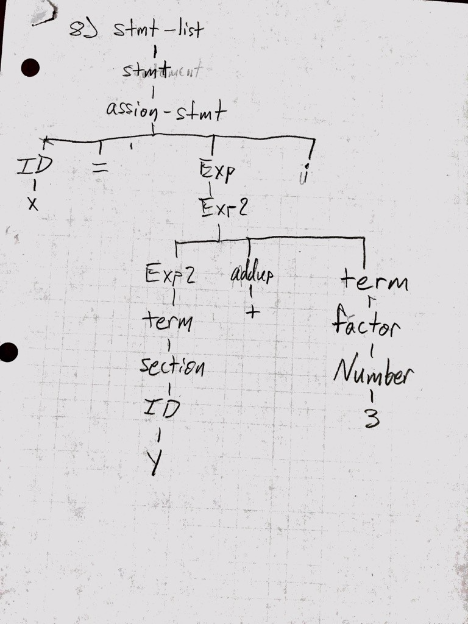 8) stmt-list
stmt
assion-stmt
ID = Exp ;
x Exp2
Exp2 addup term
term + factor
section Number
ID 3
Y